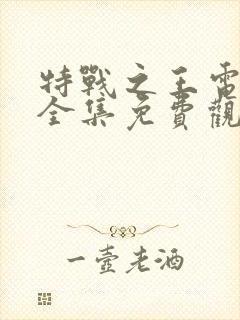 特戰之王電
全集免費觀
一壺老酒